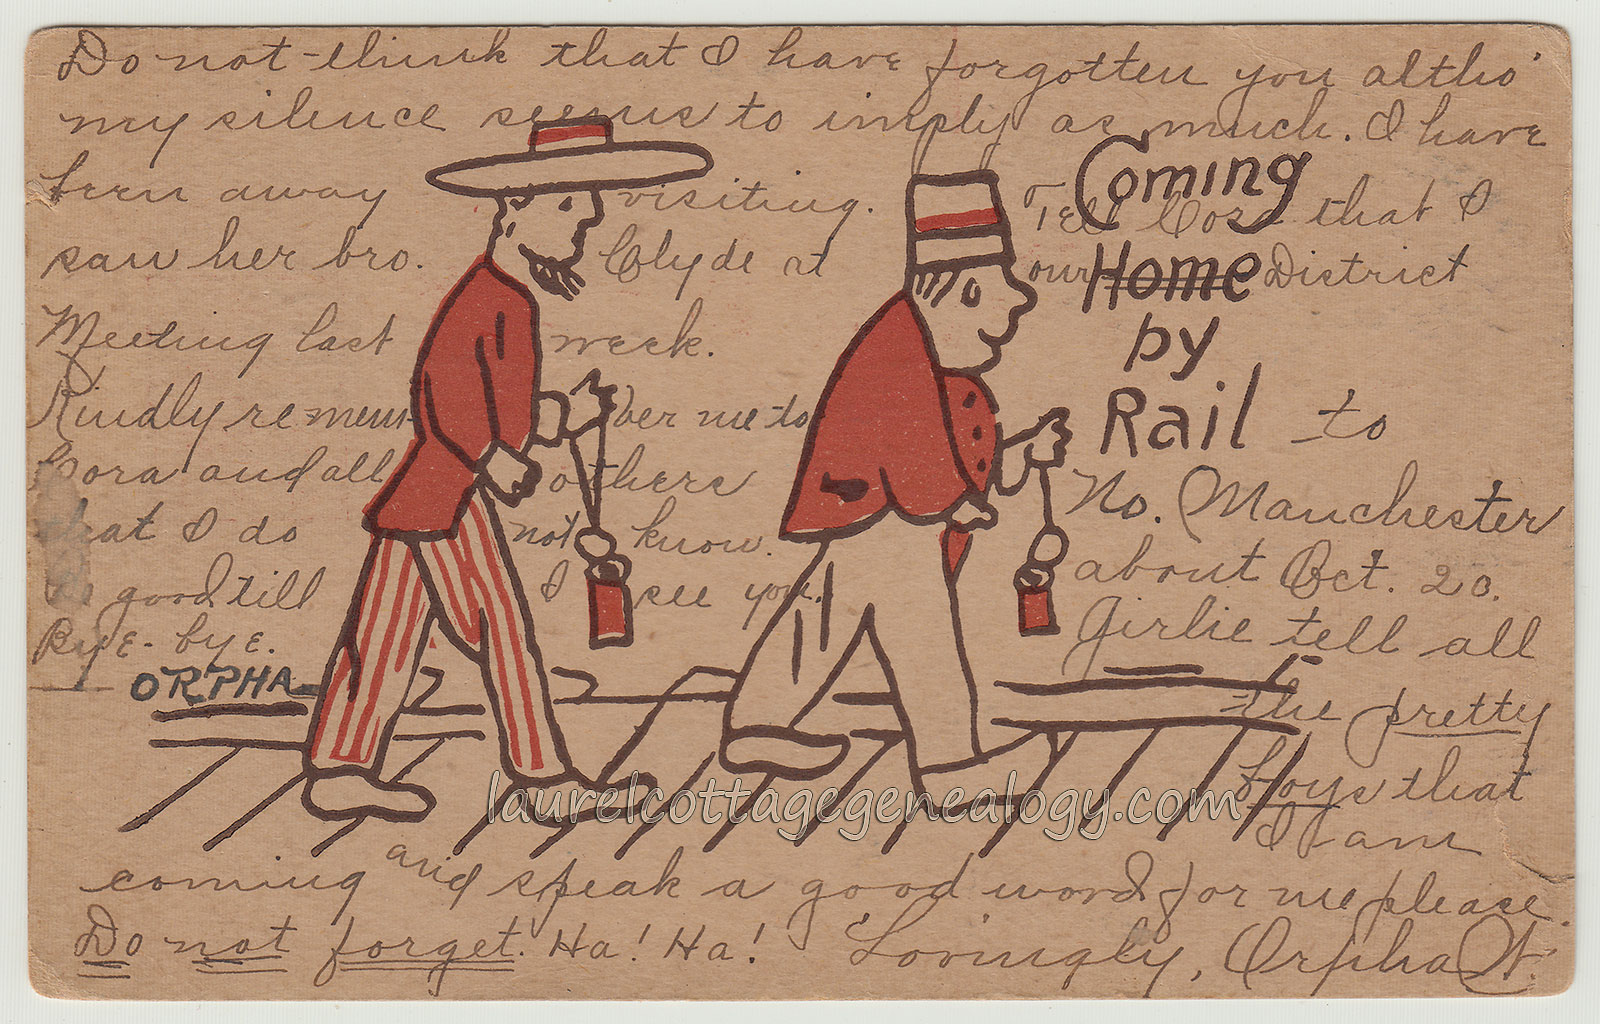 Do not think that I have forgotten you altho'
my silence seems to imply as much. I have
been away visiting. Tell Cora that I
saw her bro. Clyde at our District
Meeting last week.
Kindly remember me to
Cora and all others
that I do not know.
Be good till I see you.
Bye-bye.
ORPHA
Coming
Home
by
Rail to
No. Manchester
about Oct. 20.
Girlie tell all
the pretty
boys that
I am
coming and speak a good word for me please.
Do not forget. Ha! Ha! Lovingly, Orpha
laurelcottagegenealogy.com